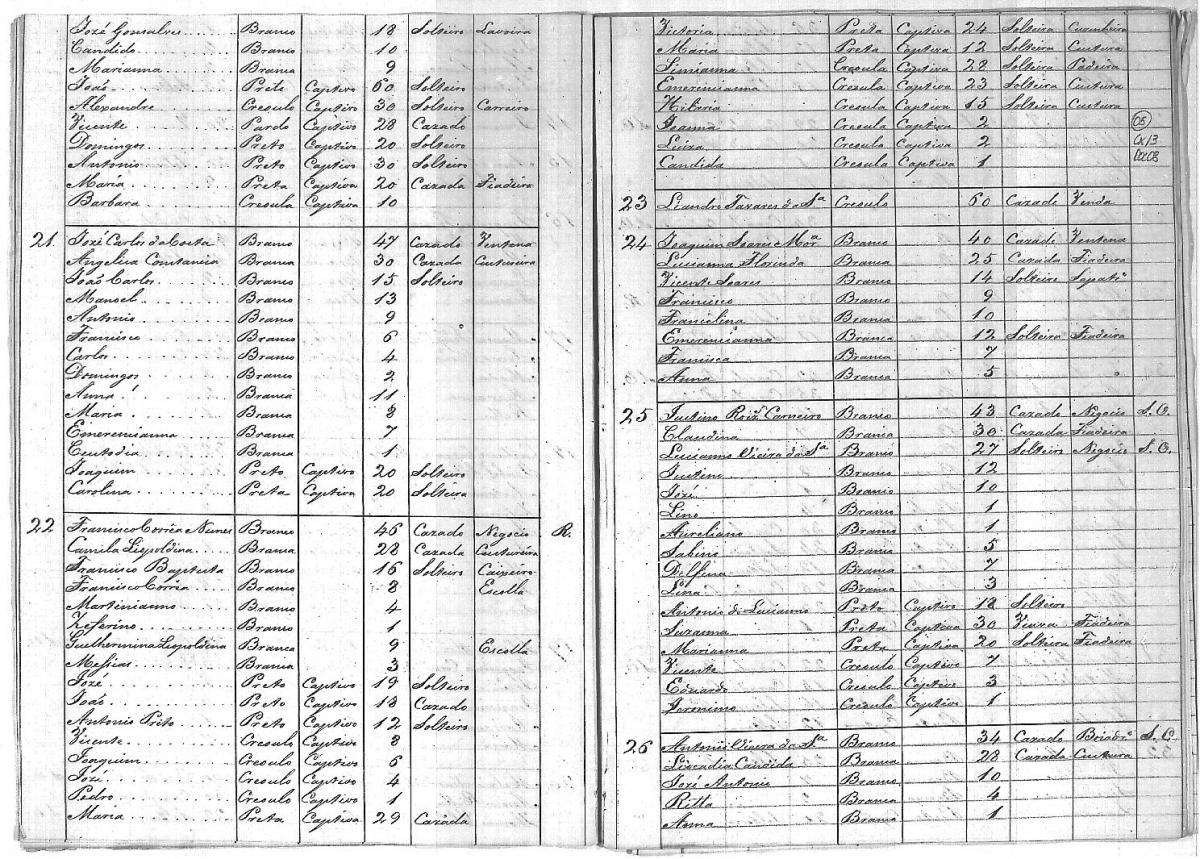 José Gonsalves Branco 18 Solteiro Lavoira
Candido Branco 10
Marianna Branca 9
João Preto Captivo 60 Solteiro
Alexandre Creoulo Captivo 30 Solteiro Carreiro
Vicente Pardo Captivo 28 Cazado
Domingos Preto Captivo 20 Solteiro
Antonio Preto Captivo 30 Solteiro
Maria Preta Captiva 20 Cazada Fiadeira
Barbara Creoula Captiva 10
21 José Carlos da Costa Branco 47 Cazado Ventena
Angelica Constancia Branca 30 Cazada Custureira
João Carlos Branco 15 Solteiro
Manoel Branco 13
Antonio Branco 9
Francisco Branco 6
Carlos Branco 4
Domingos Branco 2
Anna Branca 11
Maria Branca 8
Emerencianna Branca 7
Custodia Branca 1
Joaquim Preto Captivo 20 Solteiro
Carolina Preta Captiva 20 Solteira
22 Francisco Corrêa Nunes Branco 46 Cazado Negocio R.
Camila Liopoldina Branca 28 Cazada Custureira
Francisco Baptista Branco 16 Solteiro Caixeiro
Francisco Corrêa Branco 8 Escolla
Martinianno Branco 4
Zeferino Branco 1
Guilhermina Liopoldina Branca 9 Escolla
Messias Branca 3
José Preto Captivo 19 Solteiro
João Preto Captivo 18 Cazado
Antonio Preto Preto Captivo 12 Solteiro
Vicente Creoulo Captivo 8
Joaquim Creoulo Captivo 6
José Creoulo Captivo 4
Pedro Creoulo Captivo 1
Maria Preta Captiva 29 Cazada
Victoria Preta Captiva 24 Solteira Cuzinheira
Maria Preta Captiva 12 Solteira Custura
Simianna Creoula Captiva 28 Solteira Fiadeira
Emerencianna Creoula Captiva 23 Solteira Custura
Hilaria Creoula Captiva 15 Solteira Custura
Joanna Creoula Captiva 2
05
Luiza Creoula Captiva 2
Cx13
Candida Creoula Captiva 1
23 Leandro Tavares da Sª Creoulo 60 Cazado Venda
24 Joaquim Soares Morª Branco 40 Cazado Ventena
Lucianna Florinda Branca 25 Cazada Fiadeira
Vicente Soares Branco 14 Solteiro Sapatº
Francisco Branco 9
Francelina Branca 10
Emerencianna Branca 12 Solteira Fiadeira
Francisca Branca 7
Anna Branca 5
25 Justino Roiz Carneiro Branco 43 Cazado Negocio S. O.
Claudina Branca 30 Cazada Fiadeira
Lucianno Vieira da Sª Branco 27 Solteiro Negocio S. O.
Justino Branco 12
José Branco 10
Lino Branco 1
Aureliano Branco 1
Sabino Branco 5
Delfina Branca 7
Lina Branca 3
Antonio de Lucianno Preto Captivo 18 Solteiro
Suzanna Preta Captiva 30 Viuva Fiadeira
Marianna Preta Captiva 20 Solteira Fiadeira
Vicente Creoulo Captivo 7
Eduardo Creoulo Captivo 3
Jeronimo Creoulo Captivo 1
26 Antonio Vieira da Sª Branco 34 Cazado S. O.
Liocadia Candida Branca 28 Cazada Custura
José Antonio Branco 10
Ritta Branca 4
Anna Branca 1